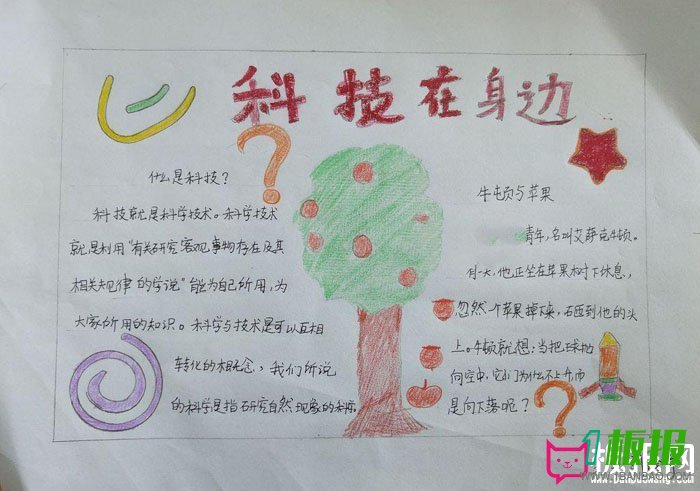 科技在身边
什么是科技？
科技就是科学技术。科学技术
就是利用"有关研究客观事物存在及其
相关规律的学说"能为自己所用，为
大家所用的知识。科学与技术是可以互相
转化的概念，我们所说
的科学是指研究自然现象的
牛顿与苹果
青年，名叫艾萨克牛顿。
有一天，他正坐在苹果树下休息，
忽然一个苹果掉下来，砸到他的头
上。牛顿就想：当把球抛
向空中，它们为什么不上升而
是向下落呢？
1板报
1BANBAO.COM
板报网
www.banbaowang.com